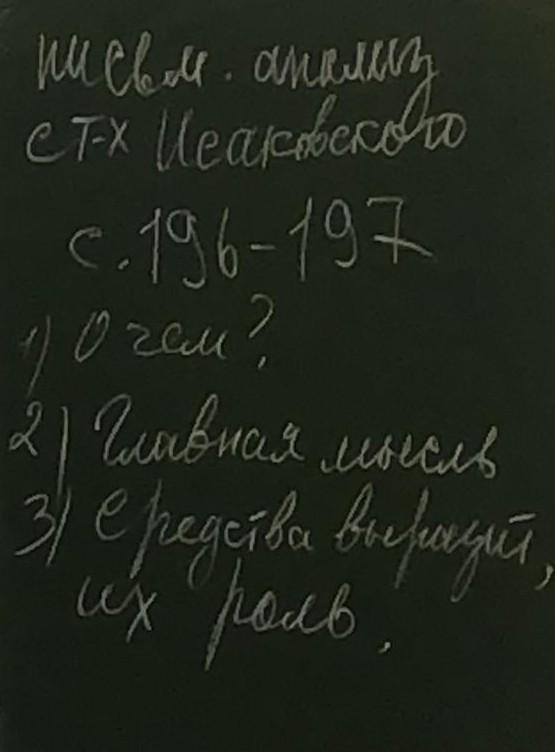 письм. анализ
ст-х Исаковского
с. 196-197
1) О чем?
2) Главная мысль
3) Средства выразит,
их роль.